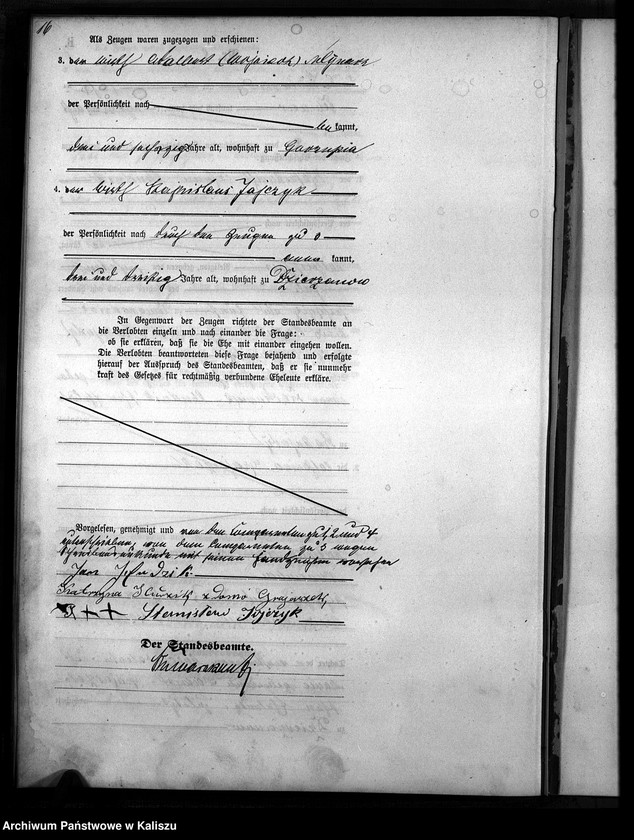 16
Als Zeugen waren zugezogen und erschienen:
3. der Wirth Adalbert (Wojciech) Młynarz
der Persönlichkeit nach
be kannt,
drei und sechzig Jahre alt, wohnhaft zu
4. der Wirth Stanislaus Jajczyk
der Persönlichkeit nach durch den Zeugen zu
kannt,
drei und dreißig Jahre alt, wohnhaft zu Dzierzanow
In Gegenwart der Zeugen richtete der Standesbeamte an
die Verlobten einzeln und nach einander die Frage:
ob sie erklären, daß sie die Ehe mit einander eingehen wollen.
Die Verlobten beantworteten diese Frage bejahend und erfolgte
hierauf der Ausspruch des Standesbeamten, daß er sie nunmehr
kraft des Gesetzes für rechtmäßig verbundene Eheleute erkläre.
Vorgelesen, genehmigt und von den zu 1, 2 und 4
unterschrieben, von dem zu 3 wegen
mit seinem Handzeichen versehen
Jan
Katrzyna z domu
+++ Jajczyk
Der Standesbeamte.
Archiwum Państwowe w Kaliszu